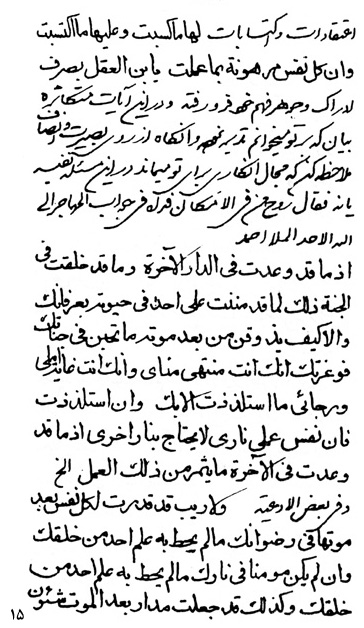 اعتقادات و اکتسابات لها ما کسبت و علیها ما اکتسبت
وان کل نفس مرهونة بما عملت یابن العقل بصرف
ادراک و جوهر فهم خود فرو رفته و در این آیات متکاثره
بیان که بر تو میخوانم تدبر نموده وآنگاه از روی بصیرت و انصاف
ملاحظه کن که مجال انکاری برای تو میماند در این مسئله نفیسه
یا نه فقال روح من فی الامکان فداه فی جواب المهاجر الی
الله الاحد الملا احمد
اذ ما قد وعدت فی الدار الآخرة و ما قد خلقت فی
الجنة ذلک لما قد مننت علی احد فی حیوته بعرفانک
والا کیف یذوقن من بعد موته ما تحبن فی جناتک
فوعزتک انک انت منتهی منای وانک انت غایة املی
ورجائی ما استلذذت الا بک وان استلذذت
فان نفس عملی ناری لا یحتاج بنار اخری اذ ما قد
وعدت فی الآخرة ما یثمر من ذلک العمل الخ
وفی بعض الادعیة ولا ریب قد قدرت لکل نفس بعد
موتها فی رضوانک مالم یحط به علم احد من خلقک
وان لم یکن مومنا فی نارک مالم یحط به علم احد من
خلقک وکذلک قد جعلت مدار بعد الموت شئون
۱۵